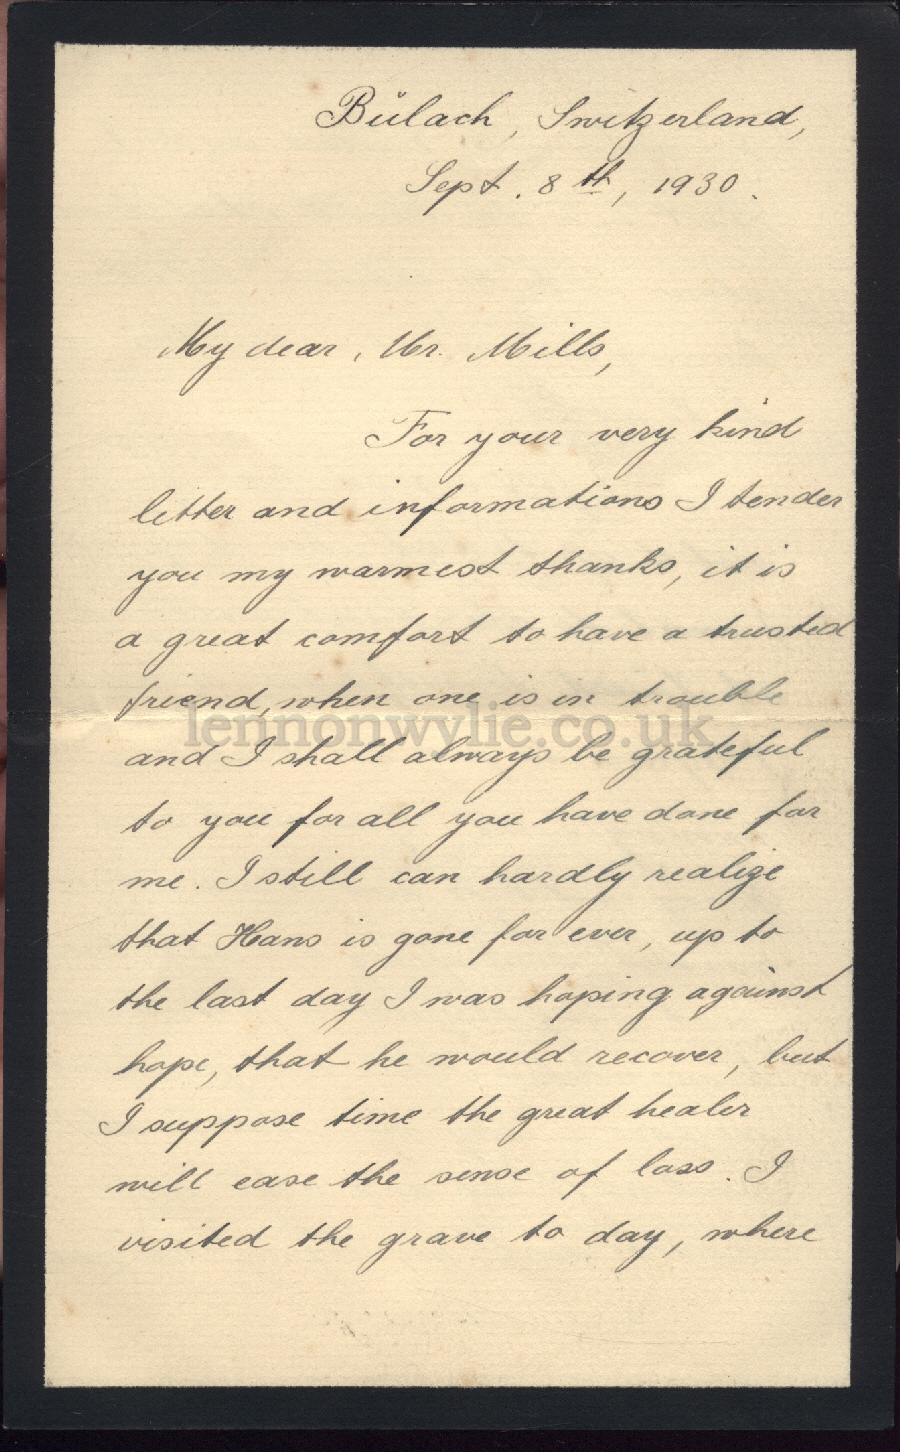 Bülach, Switzerland,
Sept. 8th, 1930.
My dear, Mr. Mills,
For your very kind
letter and informations I tender
you my warmest thanks, it is
a great comfort to have a trusted
friend, when one is in trouble
lennonwylie.co.uk
and I shall always be grateful
to you for all you have done for
me. I still can hardly realize
that Hans is gone for ever, up to
the last day I was hoping against
hope, that he would recover, but
I suppose time the great healer
will ease the sense of loss. I
visited the grave to day, where